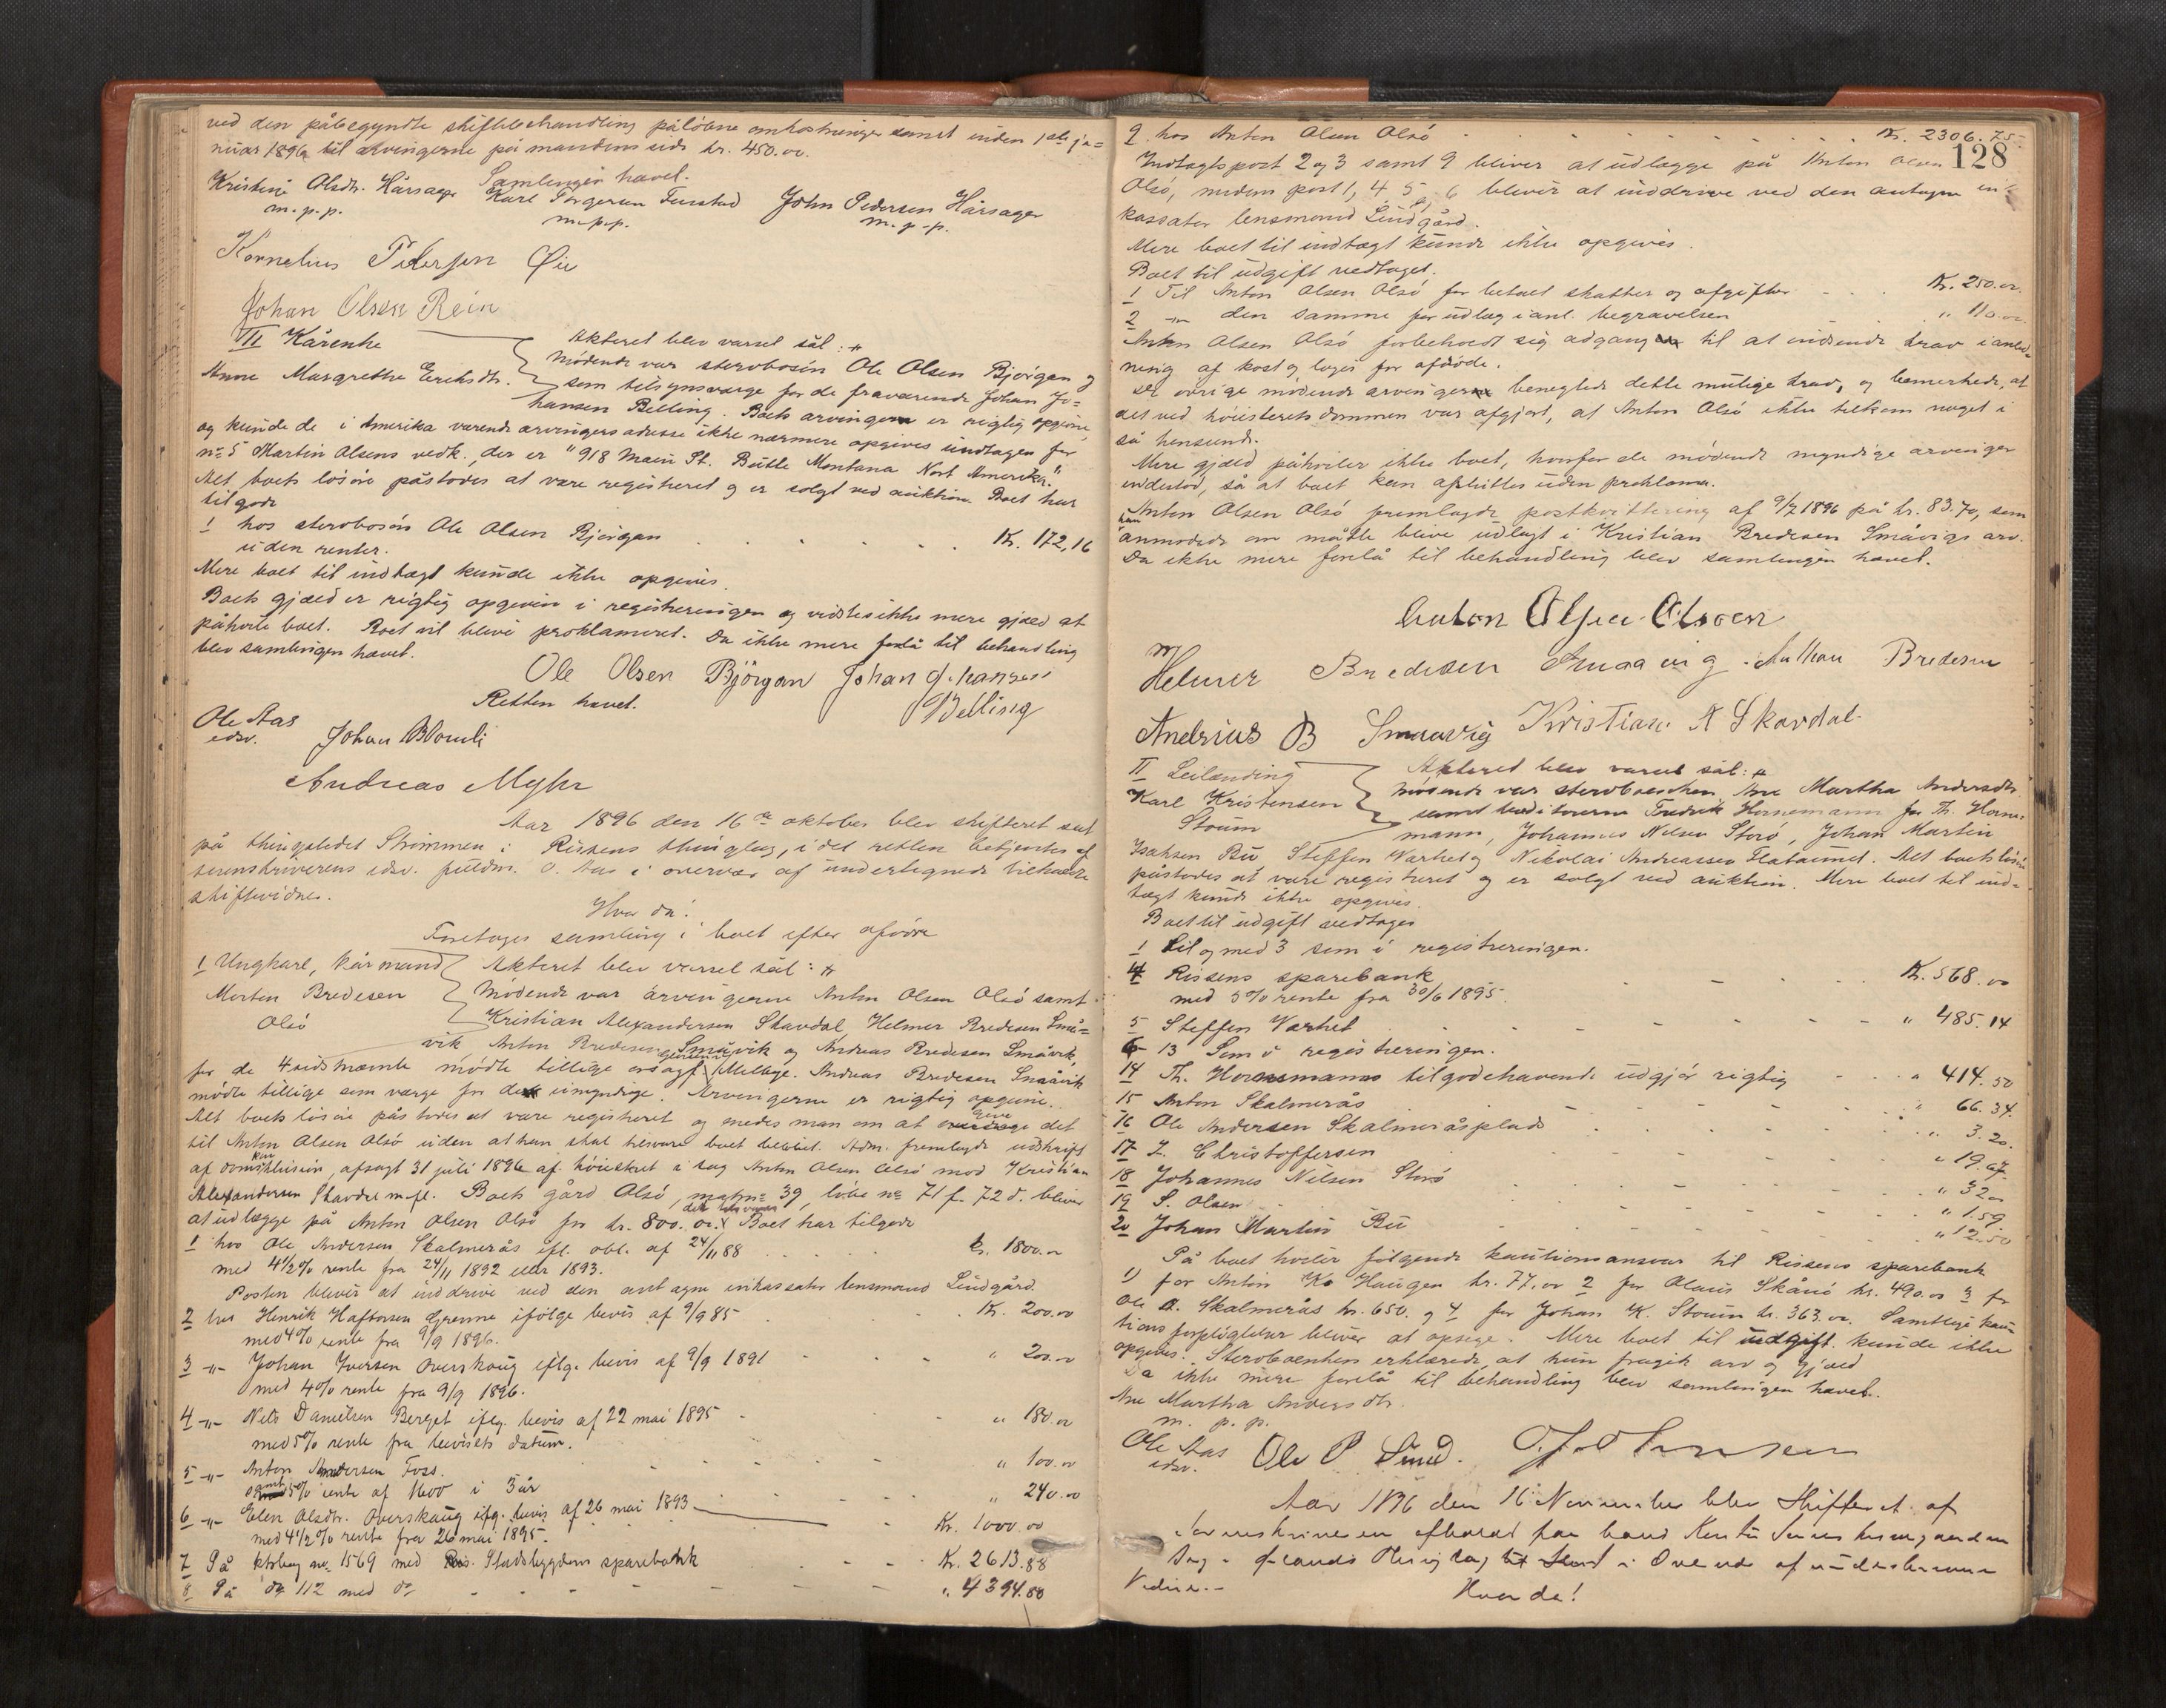 ved den påbegyndte skiftebehandling påløbne omkostninger samt inden 1ste ja=
nuar 1896 til arvingerne på mandens side kr. 450.00.
Samlingen hævet.
Kristine Olsdtr. Hårsager Karl Torgersen Fenstad John Pedersen Hårsager
m.p.p. m.p.p. m.p.p.
Kornelius Petersen Øie
Johan Olsen Rein
III Kårenke Akteret blev varsel sål: #
Anne Margrethe Eriksdtr. Mødende var stervbosøn Ole Olsen Bjørgan og
som tilsynsværge for de fraværende Johan Jo=
hansen Belling. Boets arvinger er rigtig opgivne,
og kunde de i Amerika værende arvingers adresse ikke nærmere opgives undtagen for
no 5 Martin Olsens vedk., der er "918 Main St. Butte Montana Nort Amerika."
Alt boets løsøre påstodes at være registreret og er solgt ved auktion. Boet har
tilgode
1 hos stervbosøn Ole Olsen Bjørgan Kr. 172,16
uden renter.
Mere boet til indtægt kunde ikke opgives.
Boets gjæld er rigtig opgiven i registreringen og vidstes ikke mere gjæld at
påhvile boet. Boet vil blive proklameret. Da ikke mere forelå til behandling
blev samlingen hævet.
Ole Olsen Bjørgan Johan Johansen
Belling
Retten hævet.
Ole Aas
edsv. Johan Blomli
Andreas Myhr
Aar 1896 den 16de oktober blev skifteret sat
på thingstedet Strømmen i Rissens thinglag, idet retten betjentes af
sorenskriverens edsv. fuldm. O. Aas i overvær af undertegnede tilkaldte
skiftevidner.
Hvor da!
Foretages samling i boet efter afdøde
1 Ungkarl, kårmand Akteret blev varsel sål: #
Morten Bredesen Mødende var arvingerne Anton Olsen Olsø samt
Olsø Kristian Alexandersen Skavdal, Helmer Bredesen Små=
vik Anton Bredesen Småvik og Andreas Bredesen Småvik,
for de 4 sidstnævnte mødte tillige orsagf. Melbye. Andreas Bredesen Småvik
mødte tillige som værge for de umyndige. Arvingerne er rigtig opgivne.
Alt boets løsøre påstodes at være registreret og enedes man om at give det
til Anton Olsen Olsø uden at han skal tilsvare boet beløbet. Adm. fremlagde udskrift
af domskonklusion, afsagt 31 juli 1896 af høiesteret i sag Anton Olsen Olsø mod Kristian
Alexandersen Skavdal m.fl. Boets gård Olsø, matr. no 39, løbe no 71 f. 72 d. bliver
at udlægge på Anton Olsen Olsø for kr. 800.00. Boet har tilgode
1 hos Ole Andersen Skalmerås ifl. obl. af 24/11 88 kr. 1800.00
med 4 1/2 % rente fra 24/11 1892 eller 1893.
Posten bliver at inddrive ved den antagne inkassator lensmand Lindgård.
2 hos Henrik Haftorsen Grønne ifølge bevis af 9/9 85 Kr. 200.00
med 4% rente fra 9/9 1896.
3 -"- Johan Iversen Overskaug iflg. bevis af 9/9 1891 " 200.00
med 4% rente fra 9/9 1896.
4 -"- Nils Danielsen Berget iflg. bevis af 22 mai 1895 " 180.00
med 5% rente fra bevisets datum.
5 -"- Anton Andersen Foss. " 100.00
samt 5% rente af 1600 i 3 år " 240.00
6 -"- Elen Olsdtr. Overskaug iflg. bevis af 26 mai 1893 Kr. 1000.00
med 4 1/2 % rente fra 26 mai 1895.
7 På ktrbog no 1569 med Stadsbygdens sparebank Kr. 2613.88
8 På do 112 med do " 4394.80
128
9 hos Anton Olsen Olsø Kr. 2306.75
Indtægtspost 2 og 3 samt 9 bliver at udlægge på Anton Olsen
Olsø, medens post 1, 4 5 6 bliver at inddrive ved den antagne in=
kassator lensmand Lindgård.
Mere boet til indtægt kunde ikke opgives.
Boet til udgift vedtaget.
1 Til Anton Olsen Olsø for betalt skatter og afgifter Kr. 250.00.
2 -"- den samme for udlæg i anl. begravelsen " 110.00
Anton Olsen Olsø forbeholdt sig adgang til at indsende krav i anled=
ning af kost og logis for afdøde.
De øvrige mødende arvinger benegtede dette mulige krav, og bemerkede, at
det ved høiesteretsdommen var afgjort, at Anton Olsø ikke tilkom noget i
så henseende.
Mere gjæld påhviler ikke boet, hvorfor de mødende myndige arvinger
indestod, så at boet kan afsluttes uden proklama.
Anton Olsen Olsø fremlagde postkvittering af 9/7 1896 på kr. 83.70, som
han anmodede om måtte blive udlagt i Kristian Bredesen Småvigs arv.
Da ikke mere forelå til behandling blev samlingen hævet.
Anton Olsen Olsøen
Helmer Bredesen Smaavig Anthon Bredesen
Andrias B Smaavig Kristian A Skavdal
II Leilænding Akteret blev varsel sål: #
Karl Kristensen Mødende var stervboenken Ane Martha Andersdtr
Stoum samt kreditorerne Fredrik Hornemann for Th. Horne=
mann, Johannes Nilsen Storø, Johan Martin
Isaksen Bü, Steffen Warhet og Nikolai Andreassen Flataunet. Alt boets løsøre
påstodes at være registreret og er solgt ved auktion. Mere boet til ind=
tægt kunde ikke opgives.
Boet til udgift vedtages
1 til og med 3 som i registreringen.
4 Rissens sparebank Kr. 568.00
med 5% rente fra 30/6 1895.
5 Steffen Warhet " 485.14
6-13 Som i registreringen.
14 Th. Hornemanns tilgodehavende udgjør rigtig " 414.50
15 Anton Skalmerås " 66.34.
16 Ole Andersen Skalmeråsplads " 3.20.
17 Z. Christoffersen " 19.67
18 Johannes Nilsen Storø " 32.00
19 S. Olsen " 1.59
20 Johan Martin Bü " 12.50
På boet hviler følgende kautionsansvar til Rissens sparebank
1) for Anton K. Haugen kr. 77.00 2 for Olaus Skånø kr. 490.00 3 for
Ole A. Skalmerås kr. 650. og 4 for Johan K. Stoum kr. 363.00. Samtlige kau=
tionsforpligtelser bliver at opsige. Mere boet til udgift kunde ikke
opgives. Stervboenken erklærede, at hun fragik arv og gjæld
Da ikke mere forelå til behandling blev samlingen hævet.
Ane Martha Andersdtr.
m. p. p.
Ole Aas
edsv. Ole P. Sund.
Aar 1896 den 16 November blev Skifteret af
Sorenskriveren afholdt paa hans Kontor
Thinglag i Overvær af undertegnede
Vidner.-
Hvor da!